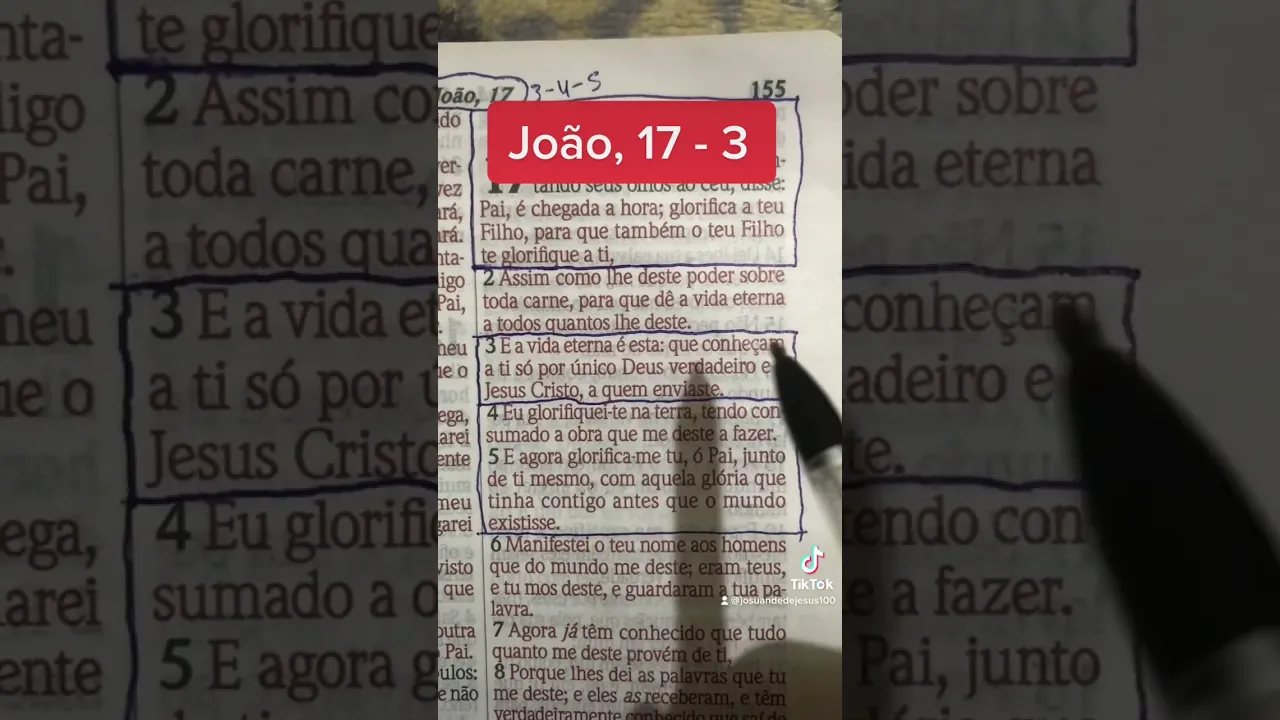 João, 17 3-4-5
155
João, 17 - 3
17 tando seus olhos ao céu, disse:
Pai, é chegada a hora; glorifica a teu
Filho, para que também o teu Filho
te glorifique a ti,
2 Assim como lhe deste poder sobre
toda carne, para que dê a vida eterna
a todos quantos lhe deste.
3 E a vida eterna é esta: que conheçam
a ti só por único Deus verdadeiro e
Jesus Cristo, a quem enviaste.
4 Eu glorifiquei-te na terra, tendo con
sumado a obra que me deste a fazer.
5 E agora glorifica-me tu, ó Pai, junto
de ti mesmo, com aquela glória que
tinha contigo antes que o mundo
existisse.
6 Manifestei o teu nome aos homens
que do mundo me deste; eram teus,
e tu mos deste, e guardaram a tua pa-
lavra.
7 Agora já têm conhecido que tudo
quanto me deste provém de ti,
8 Porque lhes dei as palavras que tu
me deste; e eles as receberam, e têm
verdadeiramente conhecido que saí de
TikTok
@josuandedejesus100